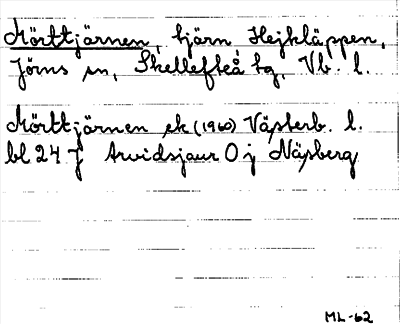 Mörttjärnen, tjärn Hejkläppen,
Jörns sn, Skellefteå tg, Vb. l.
Mörttjärnen ek (1960) Västerb. l.
bl 24 J Arvidsjaur O j Näsberg
ML-62